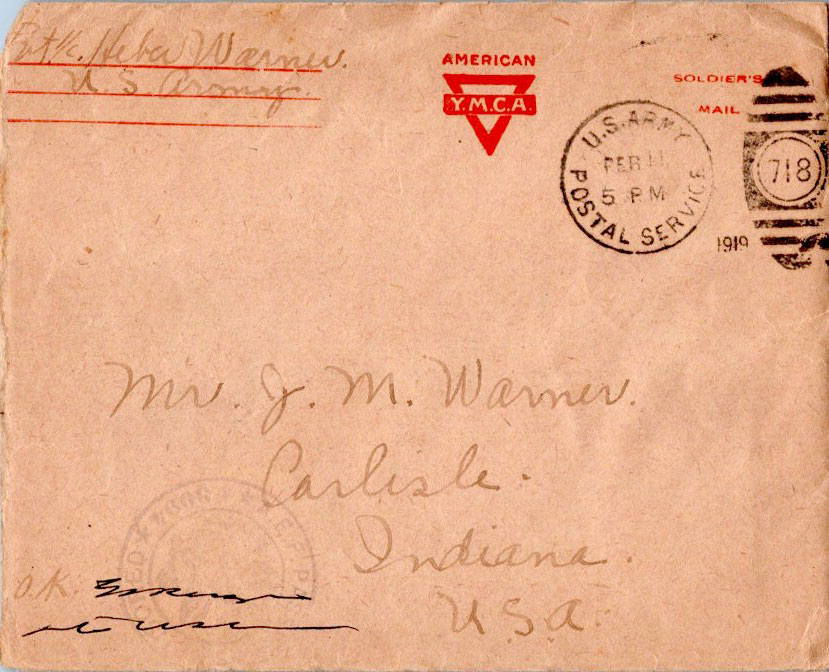 Pvt. 1/c. Heber Warner.
U. S. Army.
AMERICAN
Y.M.C.A.
SOLDIER'S
MAIL
U.S. ARMY
FEB 11
5 PM
POSTAL SERVICE
718
1919
Mr. J. M. Warner.
Carlisle.
Indiana.
U.S.A.
A.E.F.
O.K.